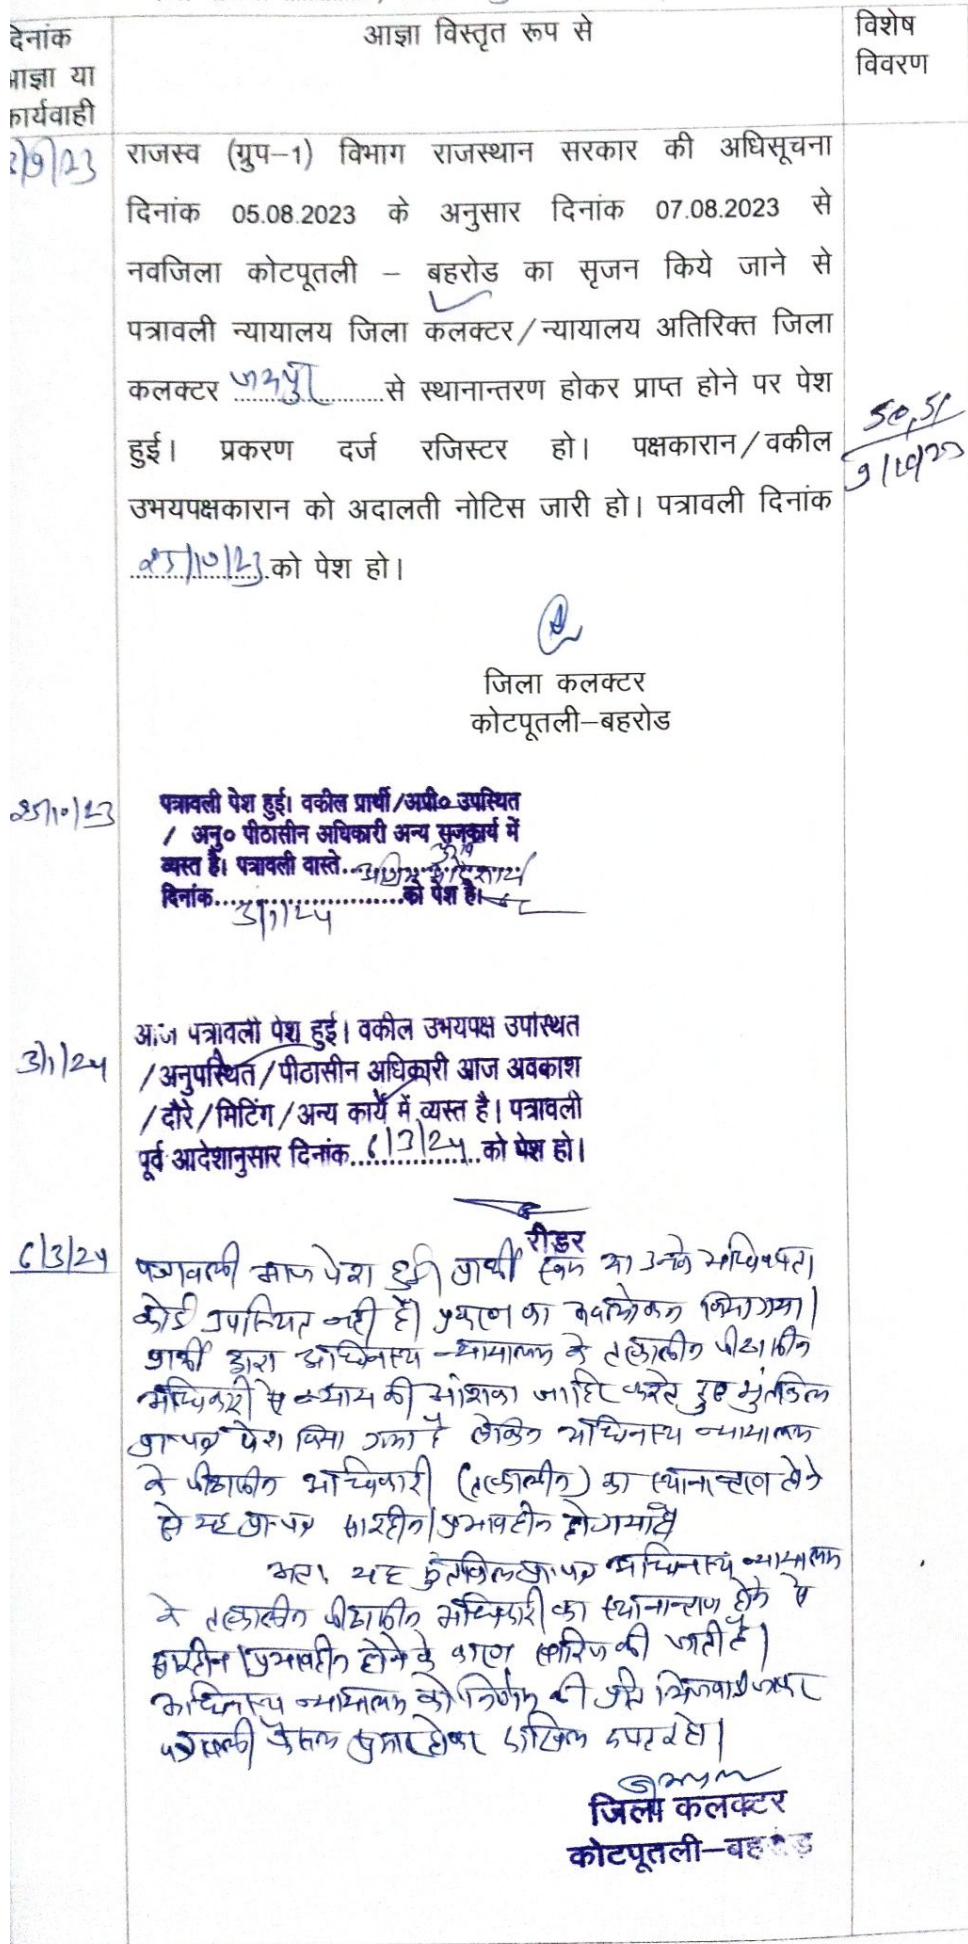 दिनांक
आज्ञा या
कार्यवाही
आज्ञा विस्तृत रूप से
विशेष
विवरण
/9/23
राजस्व (ग्रुप–1) विभाग राजस्थान सरकार की अधिसूचना
दिनांक 05.08.2023 के अनुसार दिनांक 07.08.2023 से
नवजिला कोटपूतली – बहरोड का सृजन किये जाने से
पत्रावली न्यायालय जिला कलक्टर/न्यायालय अतिरिक्त जिला
कलक्टर जयपुर से स्थानान्तरण होकर प्राप्त होने पर पेश
हुई। प्रकरण दर्ज रजिस्टर हो। पक्षकारान/वकील
उभयपक्षकारान को अदालती नोटिस जारी हो। पत्रावली दिनांक
25/10/23 को पेश हो।
50,51
9/10/23
जिला कलक्टर
कोटपूतली–बहरोड
25/10/23
पत्रावली पेश हुई। वकील प्रार्थी/अप्री० उपस्थित
/ अनु० पीठासीन अधिकारी अन्य राजकार्य में
व्यस्त है। पत्रावली वास्ते
दिनांक 3/1/24 को पेश हो।
3/1/24
आज पत्रावली पेश हुई। वकील उभयपक्ष उपस्थित
/अनुपस्थित/पीठासीन अधिकारी आज अवकाश
/दौरे/मिटिंग/अन्य कार्य में व्यस्त है। पत्रावली
पूर्व आदेशानुसार दिनांक 6/3/24 को पेश हो।
रीडर
6/3/24
पत्रावली आज पेश हुई। प्रार्थी स्वयं या उनके अधिवक्ता
कोई उपस्थित नहीं है। प्रकरण का अवलोकन किया गया।
प्रार्थी द्वारा अधिनस्थ न्यायालय के तत्कालीन पीठासीन
अधिकारी से न्याय की आशंका जाहिर करते हुए मुंतकिल
प्रा-पत्र पेश किया गया है लेकिन अधिनस्थ न्यायालय
के पीठासीन अधिकारी (तत्कालीन) का स्थानान्तरण होने
से यह प्रा-पत्र सारहीन/प्रभावहीन हो गया है
अतः यह मुंतकिल प्रा-पत्र अधिनस्थ न्यायालय
के तत्कालीन पीठासीन अधिकारी का स्थानान्तरण होने से
सारहीन/प्रभावहीन होने के कारण खारिज की जाती है।
अधिनस्थ न्यायालय को निर्णय की प्रति भिजवाई जाकर
पत्रावली फैसल शुमार होकर दाखिल दफ्तर हो।
जिला कलक्टर
कोटपूतली–बहरोड़